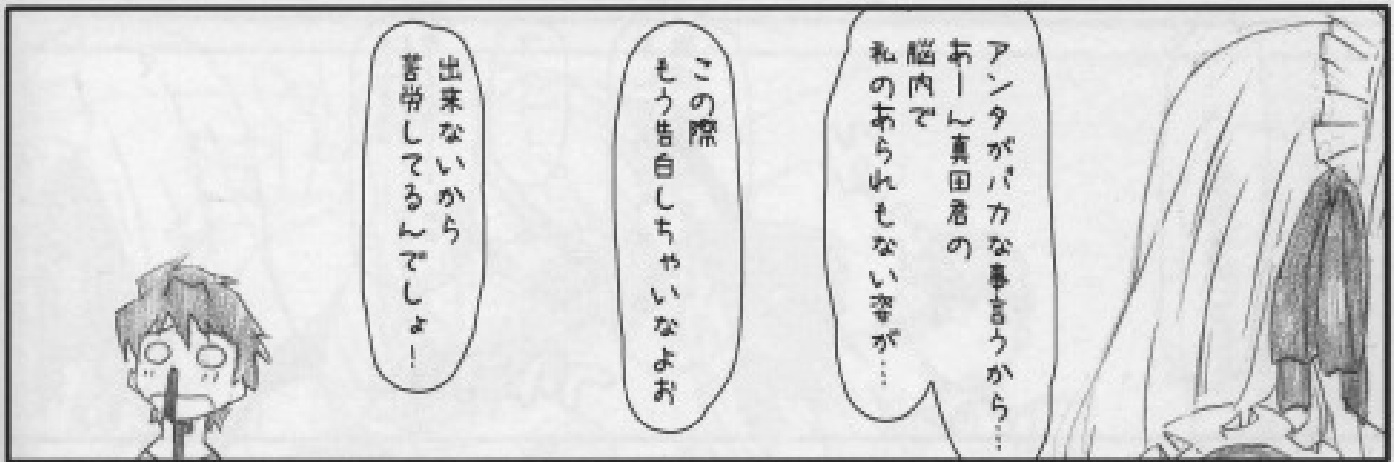 アンタがバカな事言うから…
あーん真田君の
脳内で
私のあられもない姿が…
この際
もう告白しちゃいなよお
出来ないから
苦労してるんでしょ!